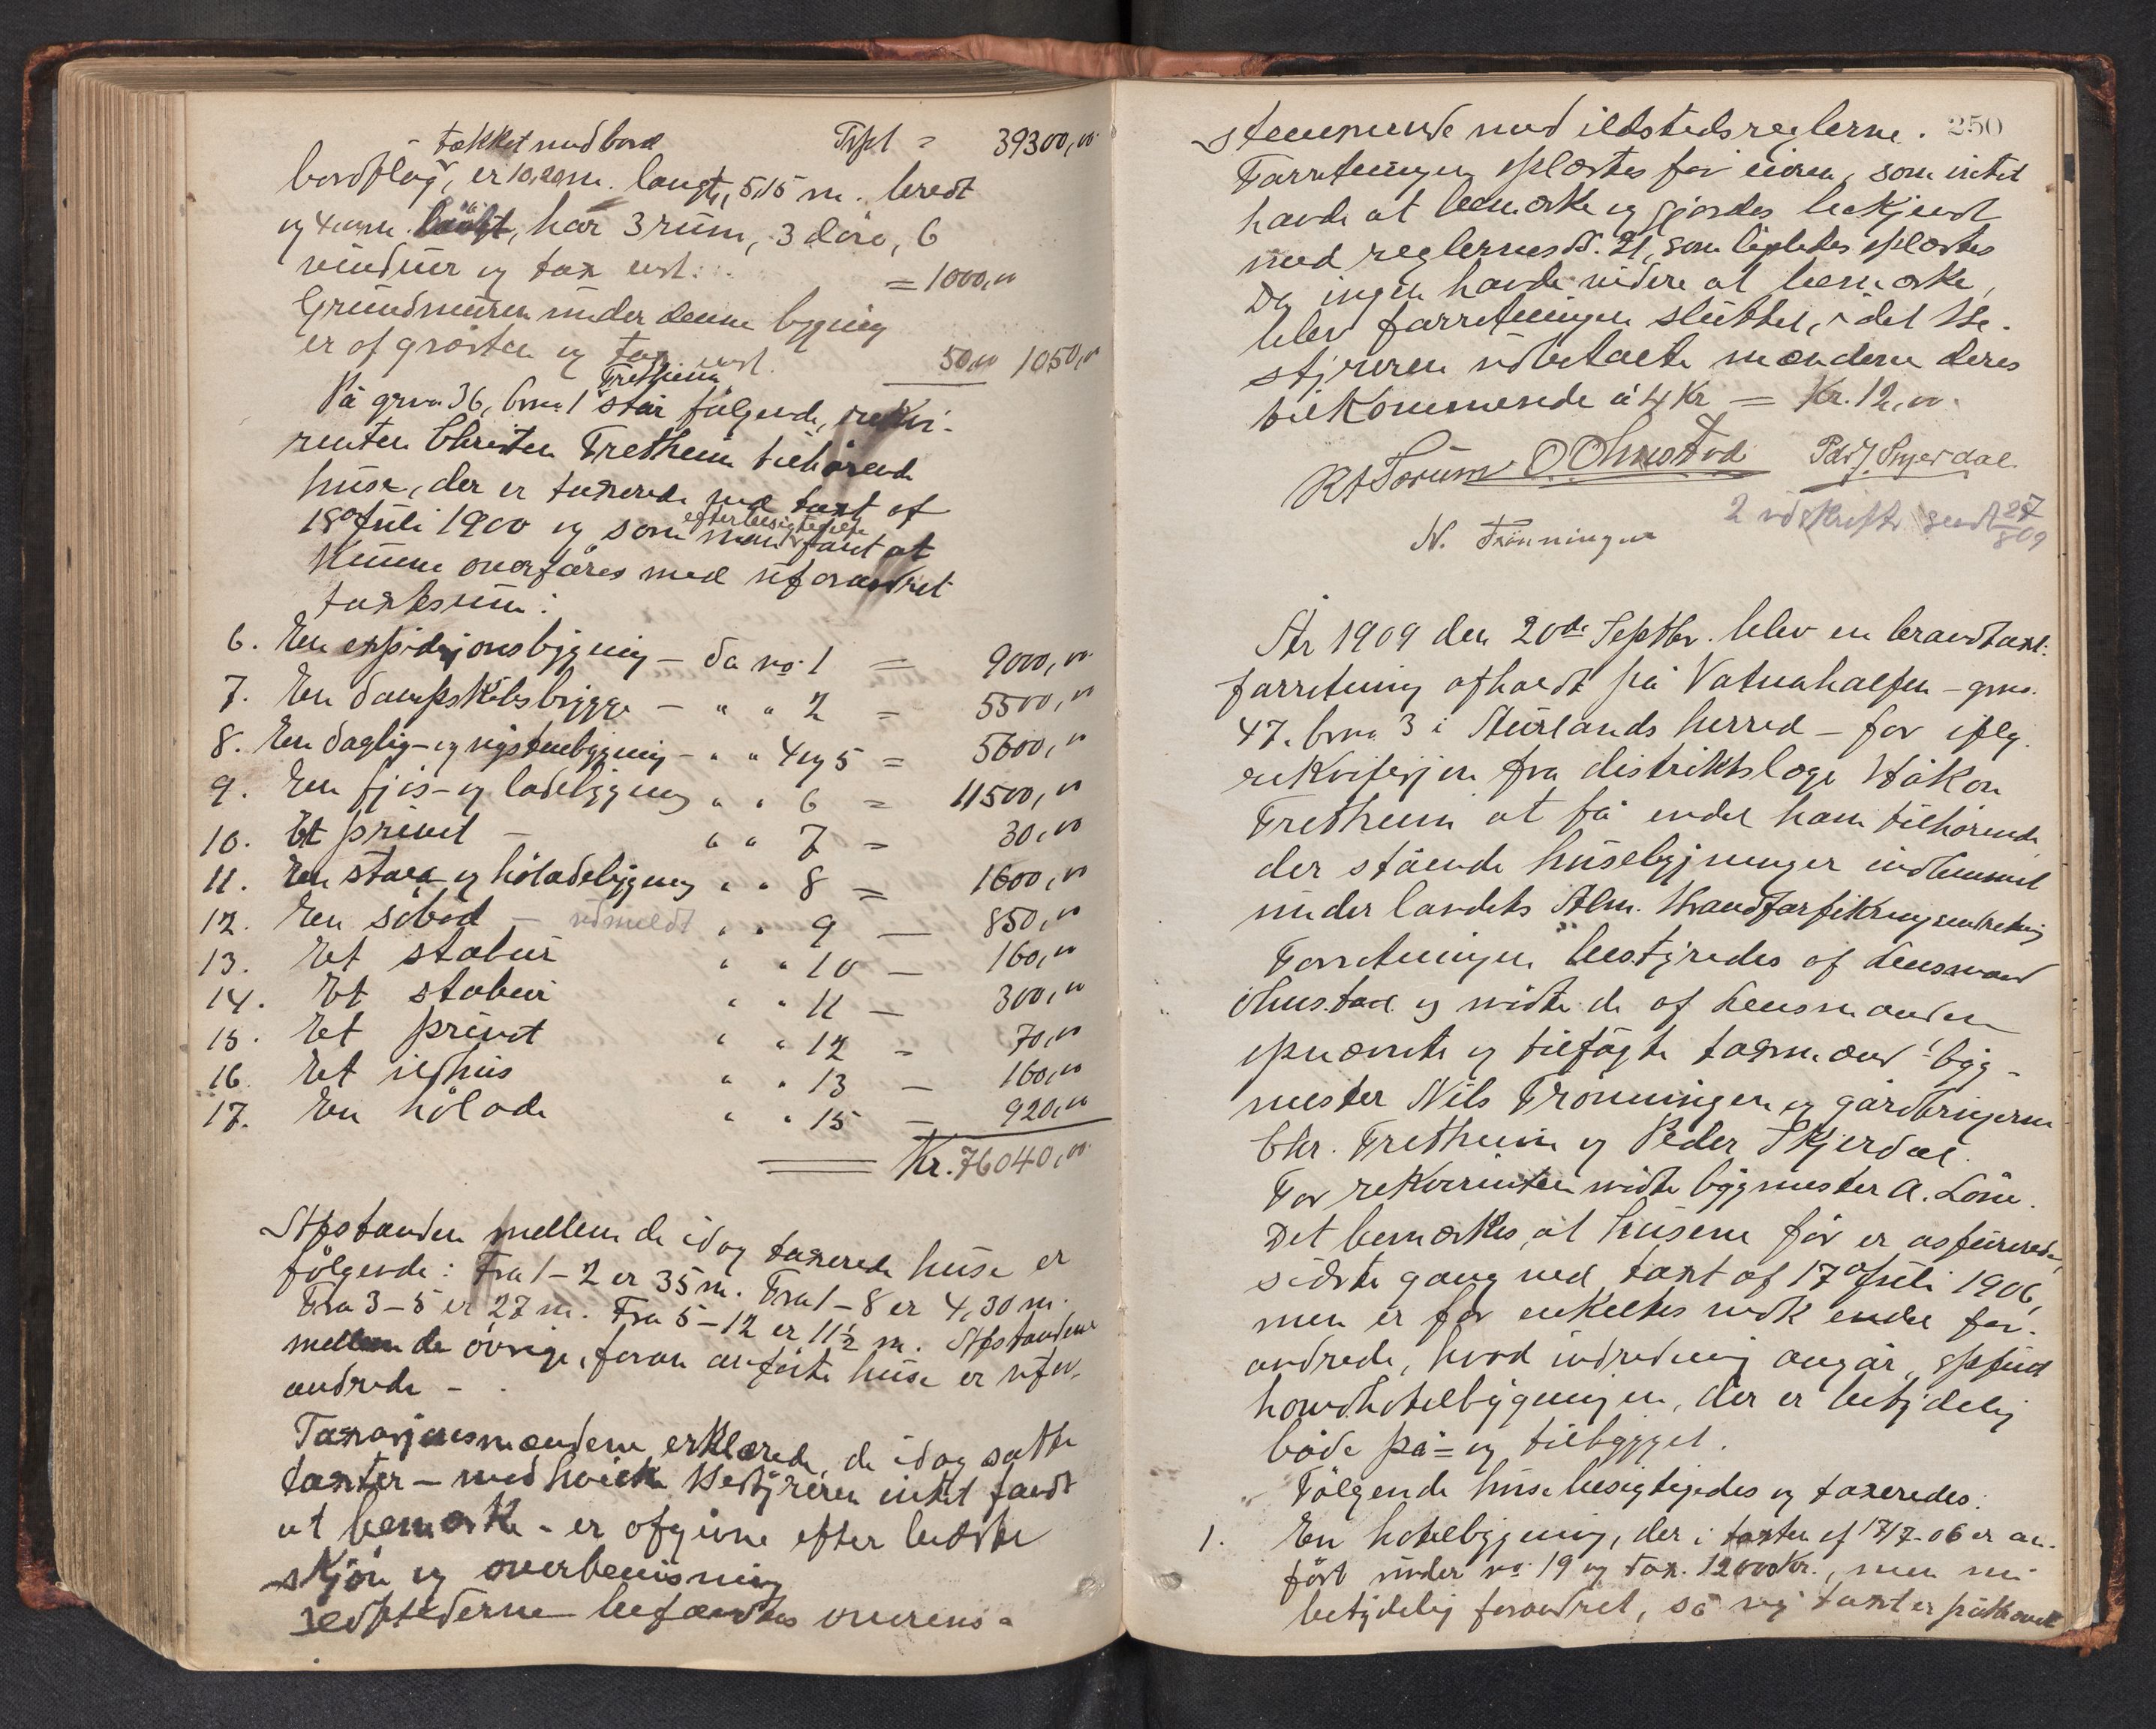 takket med bord Trpt = 39300,00
bordtag, er 10,20 m. langt, 5,15 m. bredt
og 4 m. höit, har 3 rum, 3 döre, 6
vinduer og tax. = 1000,00
Grundmuren under denne bygning
er af gråsten og tax. 50,00 1050,00
På gno 36, bno 1 Fretheim står fölgende, rekvi-
renten Christen Fretheim tilhörende
huse, der er taxerede ved taxt af
18 Juli 1900 og som man efter besigtigelse fant at
kunne overföres med uforandret
taxtsum:
6. En expedisjonsbygning - da no. 1 = 9000,00
7. En dampskibsbrygge - " " 2 = 5500,00
8. En daglig- og nystuebygning - " " 4 og 5 = 5600,00
9. En fjös- og ladebygning " " 6 = 11500,00
10. Et privet - " " 7 = 30,00
11. En stald- og höladebygning " " 8 = 1600,00
12. En söbod - udmeldt " " 9 - 850,00
13. Et stabur " " 10 - 160,00
14. Et stabur " " 11 - 300,00
15. Et privet " " 12 - 70,00
16. Et ildhus " " 13 - 160,00
17. En hölade " " 15 - 920,00
Kr. 76040,00
Afstanden mellem de idag taxerede huse er
fölgende: Fra 1-2 er 35 m. Fra 1-8 er 4,30 m.
Fra 3-5 er 27 m. Fra 5-12 er 11½ m. Afstandene
mellem de övrige, foran anförte huse er ufor-
andrede -
Taxasjonsmændene erklærede, de idag satte
taxter - med hvilke Bestyreren intet fandt
at bemærke - er afgivne efter bedste
skjön og overbevisning
Ildstederne befandtes overens-
stemmende med ildstedsreglerne. 250
Forretningen oplæstes for eieren, som intet
havde at bemærke og gjordes bekjendt
med reglernes § 21, som ligeledes oplæstes
Da ingen havde videre at bemærke,
blev forretningen sluttet, idet Be-
styreren udbetalte mændene deres
tilkommende á 4 Kr = Kr. 12,00.
R A Sorum O Ohnstad Peder J Skjerdal
N. Trönningen
2 udskrifter sendt 28/8 09
År 1909 den 20de Septbr. blev en brandtaxt-
forretning afholdt på Vatnahalsen - gno.
47. bno 3 i Aurlands herred - for ifölg.
rekvisisjon fra distriktslæge Håkon
Fretheim at få endel ham tilhörende
der stående husebygninger indlemmet
under landets Alm. Brandforsikringsindretning
Forretningen bestyredes af Lensmand
Ohnstad og mödte de af Lensmanden
opnævnte og tilsagte taxmænd: byg-
mester Nils Trönningen og gårdbrugerne
Chr. Fretheim og Peder Skjerdal.
For rekvirenten mödte bygmester A. Löne.
Det bemærkes, at husene för er assurerede,
sidste gang ved taxt af 17 Juli 1906,
men er for enkeltes vedk. endel for-
andrede, hvad indredning angår, opfört
hovedhotelbygningen, der er betydelig
både på- og tilbygget.
Fölgende huse besigtigedes og taxeredes:
1. En hotelbygning, der i taxten af 17/7-06 er an-
fört under no. 19 og tax. 12000 Kr., men nu
betydelig forandret, så ny taxt er påkrævet